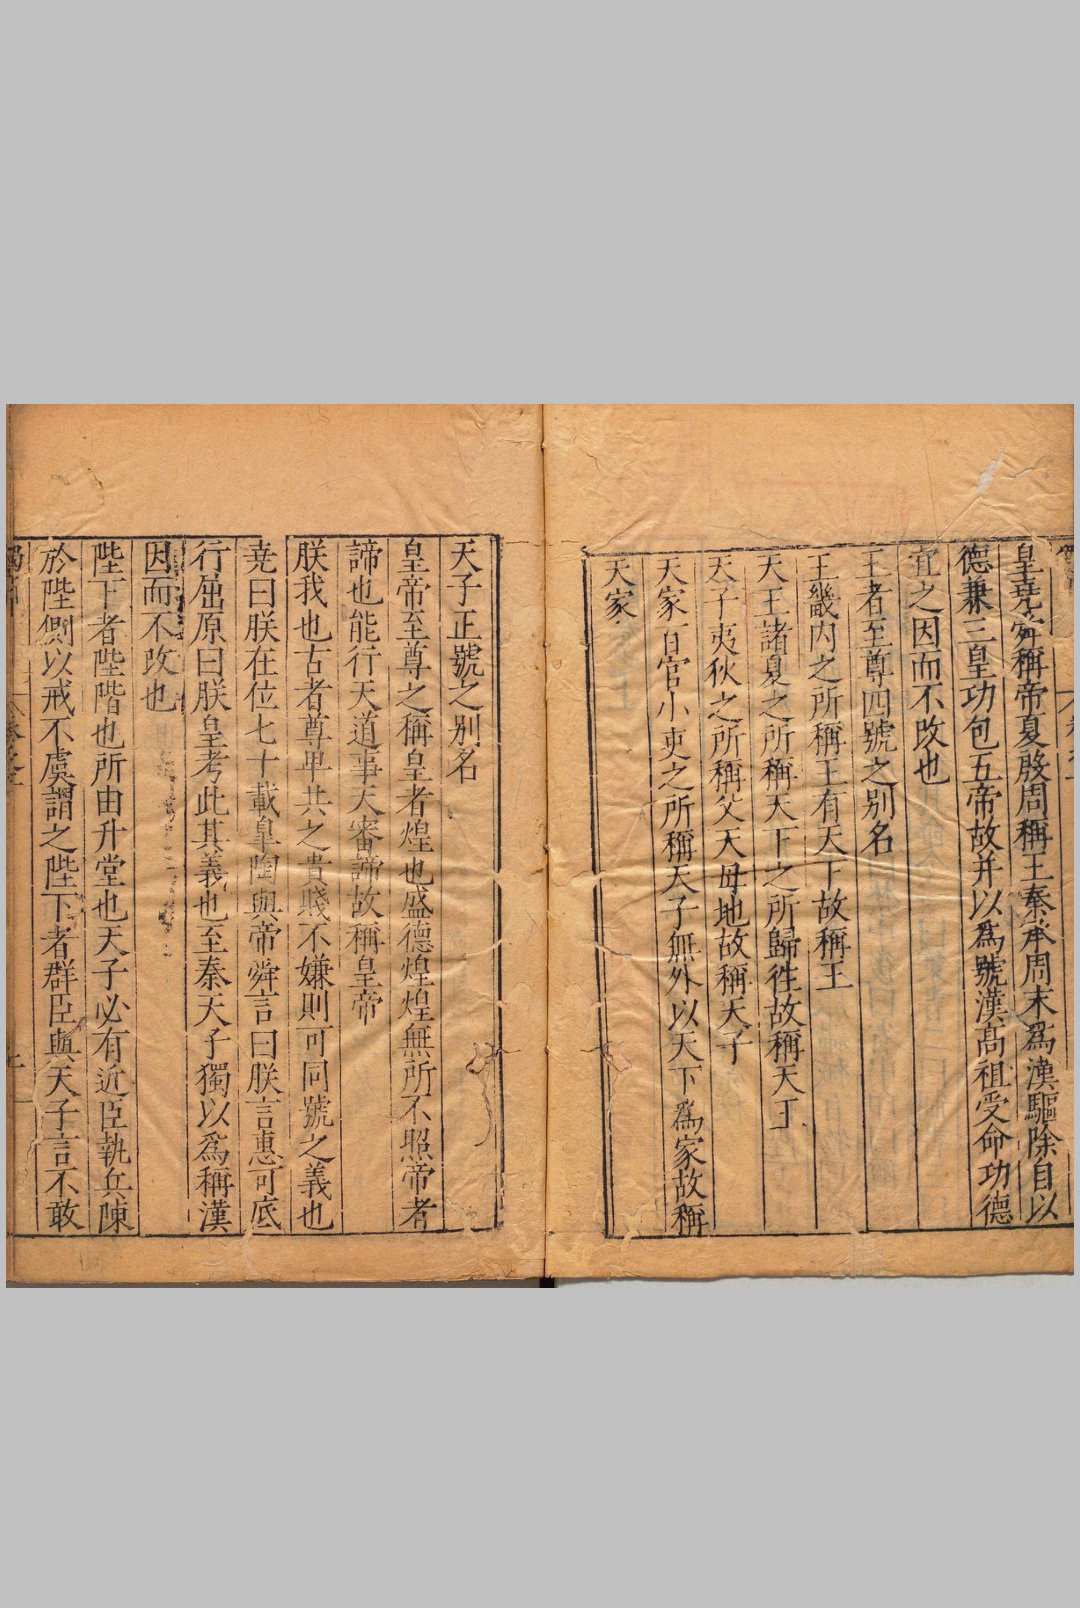 皇堯舜稱帝夏殷周稱王秦承周末爲漢驅除自以
德兼三皇功包五帝故并以爲號漢高祖受命功德
宜之因而不改也
王者至尊四號之别名
王畿内之所稱王有天下故稱王
天王諸夏之所稱天下之所歸徃故稱天王
天子夷狄之所稱父天母地故稱天子
天家百官小吏之所稱天子無外以天下爲家故稱
天家
天子正號之别名
皇帝至尊之稱皇者煌也盛德煌煌無所不照帝者
諦也能行天道事天審諦故稱皇帝
朕我也古者尊卑共之貴賤不嫌則可同號之義也
堯曰朕在位七十載皐陶與帝舜言曰朕言惠可底
行屈原曰朕皇考此其義也至秦天子獨以爲稱漢
因而不改也
陛下者陛階也所由升堂也天子必有近臣執兵陳
於陛側以戒不虞謂之陛下者群臣與天子言不敢